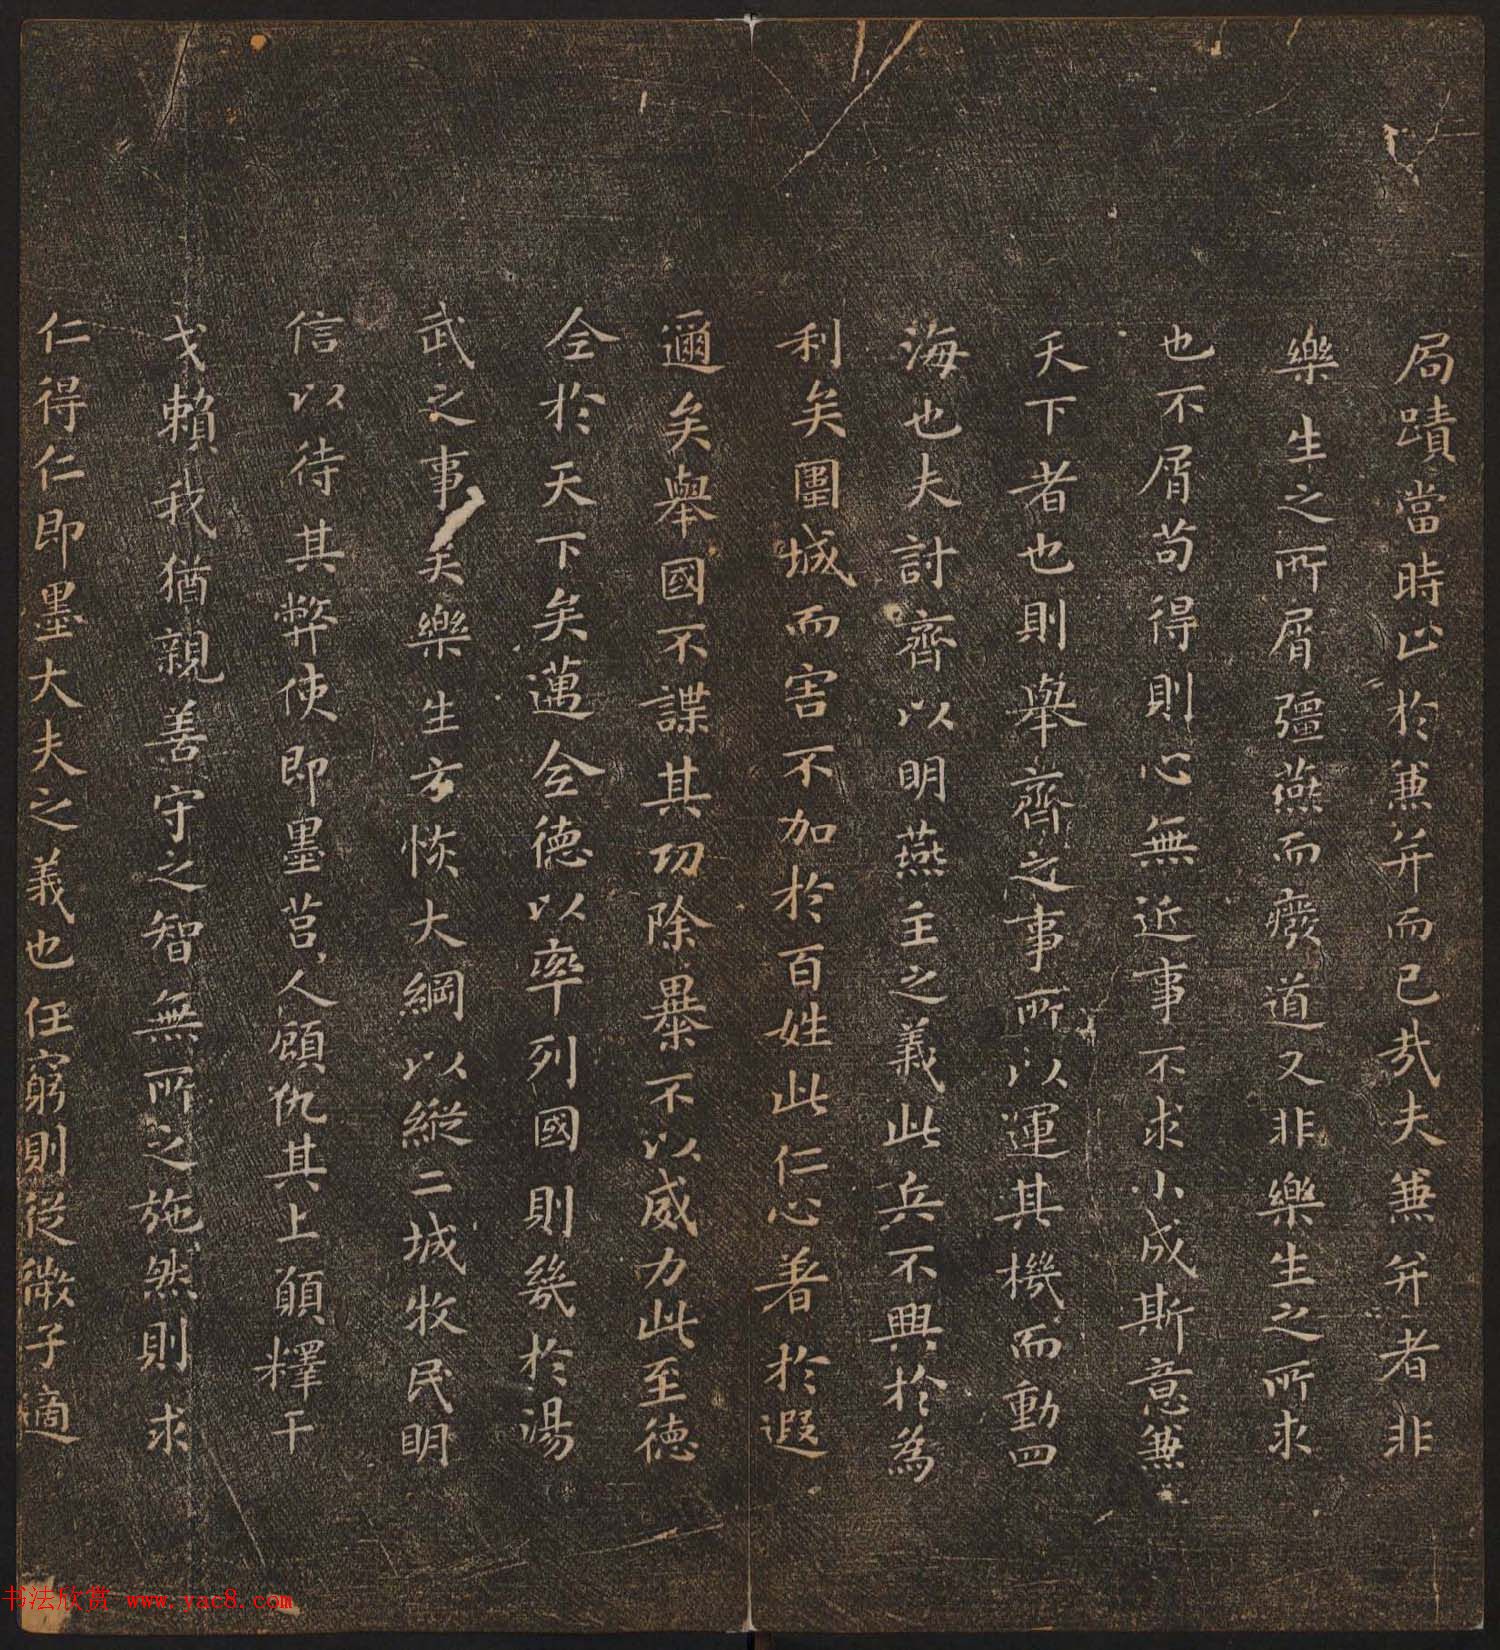 局蹟當時止於兼并而已哉夫兼并者非
樂生之所屑彊燕而廢道又非樂生之所求
也不屑苟得則心無近事不求小成斯意兼
天下者也則舉齊之事所以運其機而動四
海也夫討齊以明燕主之義此兵不興於為
利矣圍城而害不加於百姓此仁心著於遐
邇矣舉國不謀其功除暴不以威力此至德
全於天下矣邁全德以率列國則幾於湯
武之事矣樂生方恢大綱以縱二城牧民明
信以待其弊使即墨莒人顧仇其上願釋干
戈賴我猶親善守之智無所之施然則求
仁得仁即墨大夫之義也任窮則從微子適
书法欣赏 www.yac8.com